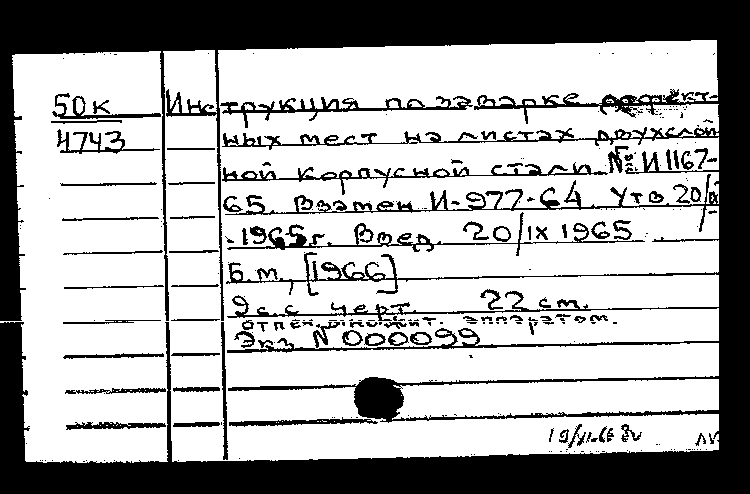 50к Инструкция по заварке дефект-
4743 ных мест на листах двухслой-
ной корпусной стали № И1167-
65. Взамен И-977-64. Утв 20/IX
1965г. Введ. 20/IX 1965
Б.м., [1966]
9с. с черт. 22 см.
отпеч. множит. аппаратом.
Экз N 000099